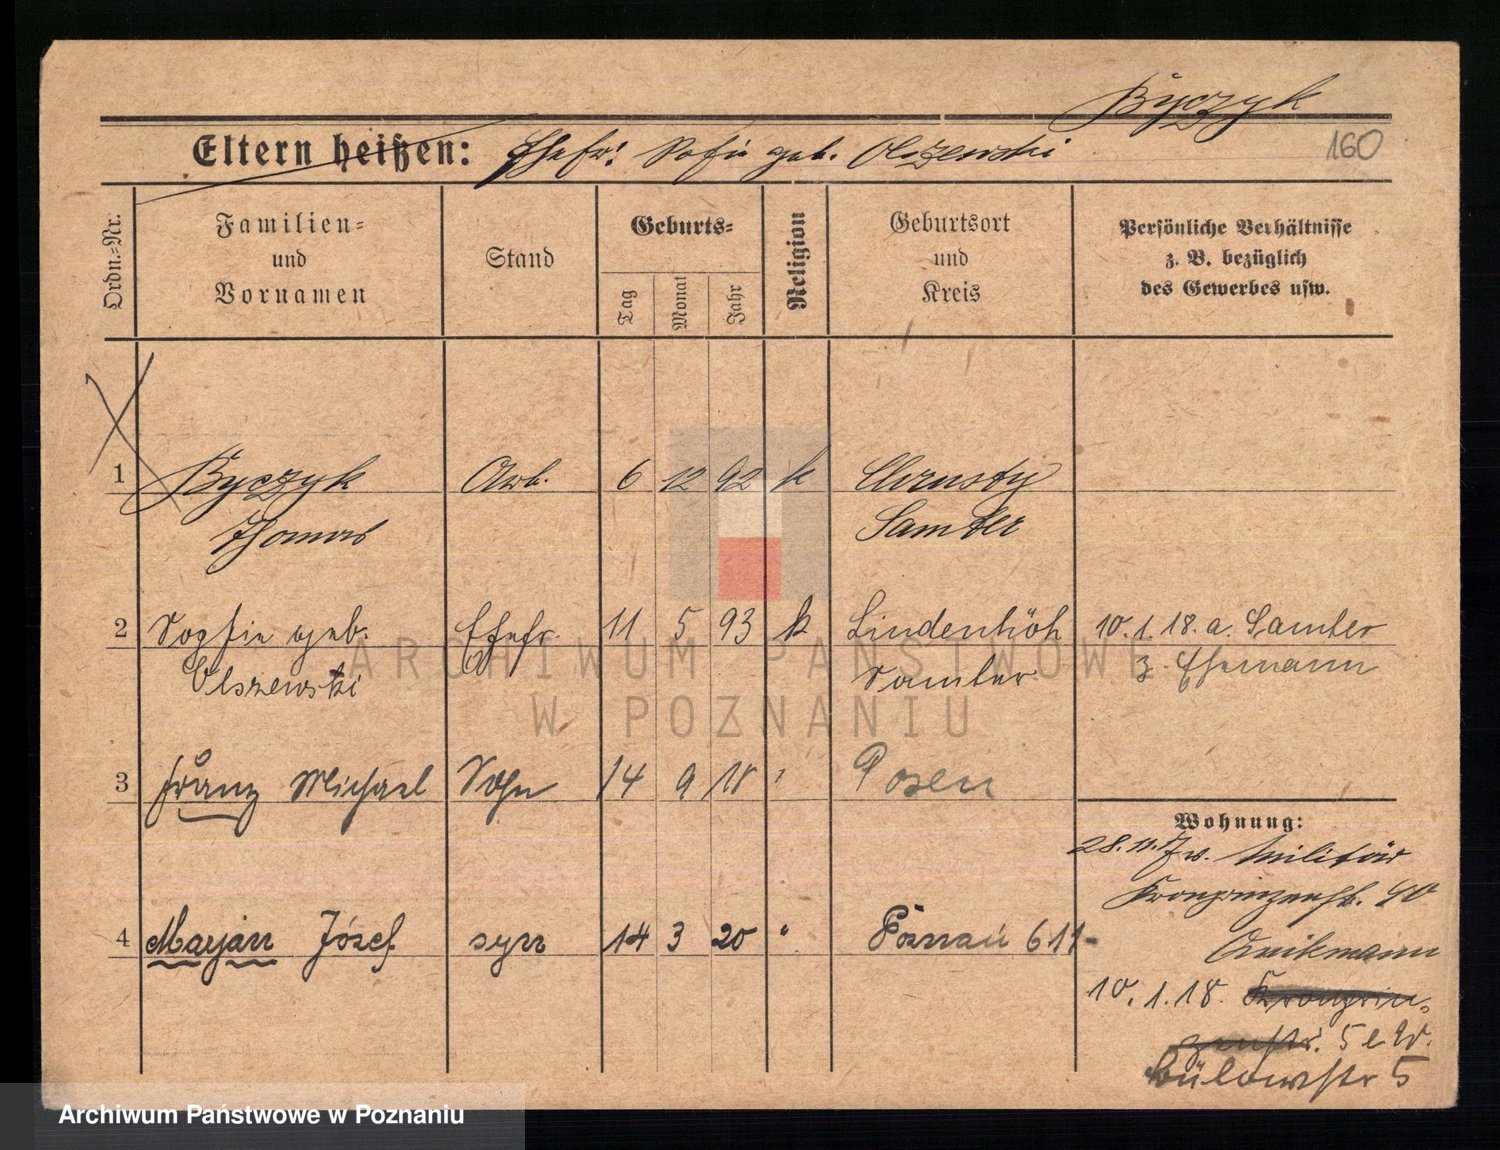 Byczyk
Eltern heißen: Ehefr: Sofie geb. Olszewski
160
Ordn.=Nr.
Familien=
und
Vornamen
Stand
Geburts=
Tag
Monat
Jahr
Religion
Geburtsort
und
Kreis
Persönliche Verhältnisse
z. B. bezüglich
des Gewerbes usw.
1 Byczyk Arb. 6 12 92 k
Thomas Samter
2 Sophie geb. Ehefr. 11 5 93 k Lindenhöh 10.1.18. a. Samter
Olszewski Samter z. Ehemann
3 Franz Michael Sohn 14 9 18 " Posen
Wohnung:
28.11.17 v. Militär
Kronprinzenstr. 90
4 Maryan Józef syn 14 3 20 " Poznań 611-
10.1.18. Kronprin-
zenstr. 5
Bülowstr 5
ARCHIWUM PAŃSTWOWE
W POZNANIU
Archiwum Państwowe w Poznaniu